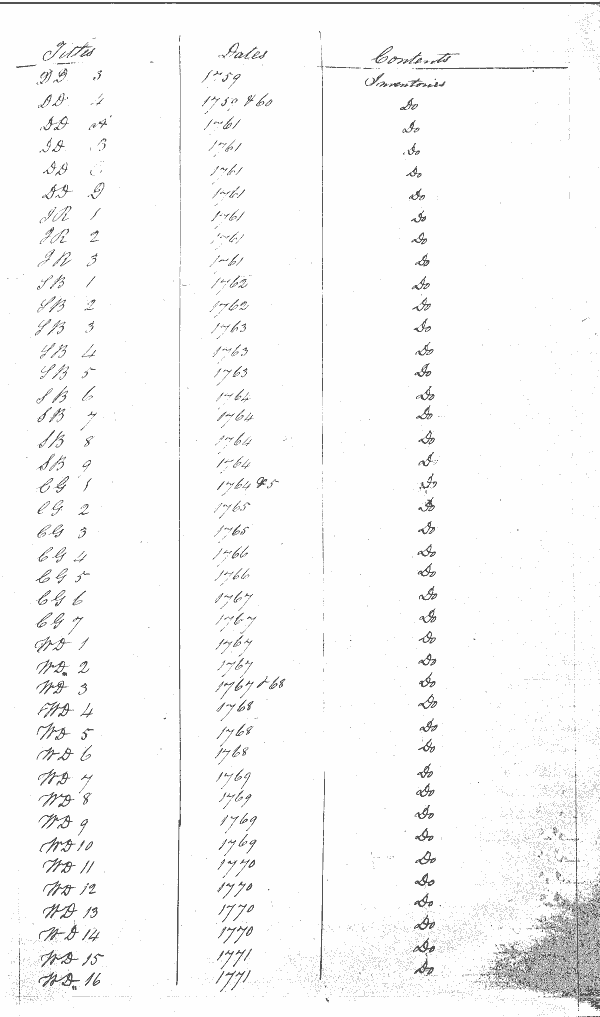 Titles Dates Contents
DD 3 1759 Inventories
DD 4 1759 & 60 Do
DD A 1761 Do
DD B 1761 Do
DD C 1761 Do
DD D 1761 Do
JR 1 1761 Do
JR 2 1761 Do
JR 3 1761 Do
SB 1 1762 Do
SB 2 1762 Do
SB 3 1763 Do
SB 4 1763 Do
SB 5 1763 Do
SB 6 1764 Do
SB 7 1764 Do
SB 8 1764 Do
SB 9 1764 Do
CG 1 1764 & 5 Do
CG 2 1765 Do
CG 3 1765 Do
CG 4 1766 Do
CG 5 1766 Do
CG 6 1767 Do
CG 7 1767 Do
WD 1 1767 Do
WD 2 1767 Do
WD 3 1767 & 68 Do
WD 4 1768 Do
WD 5 1768 Do
WD 6 1768 Do
WD 7 1769 Do
WD 8 1769 Do
WD 9 1769 Do
WD 10 1769 Do
WD 11 1770 Do
WD 12 1770 Do
WD 13 1770 Do
WD 14 1770 Do
WD 15 1771 Do
WD 16 1771 Do